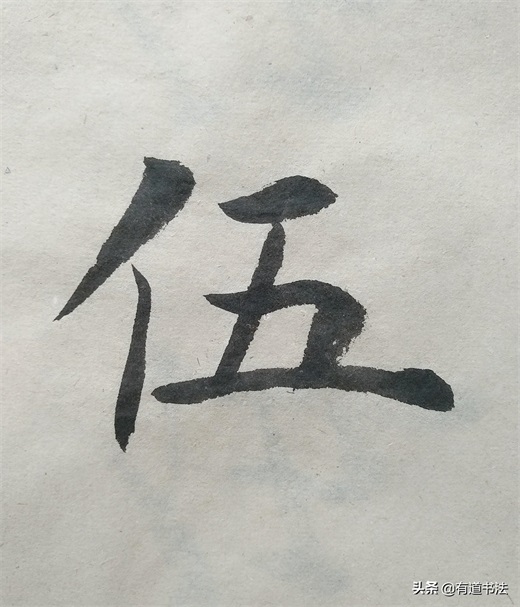 伍
头条 @有道书法